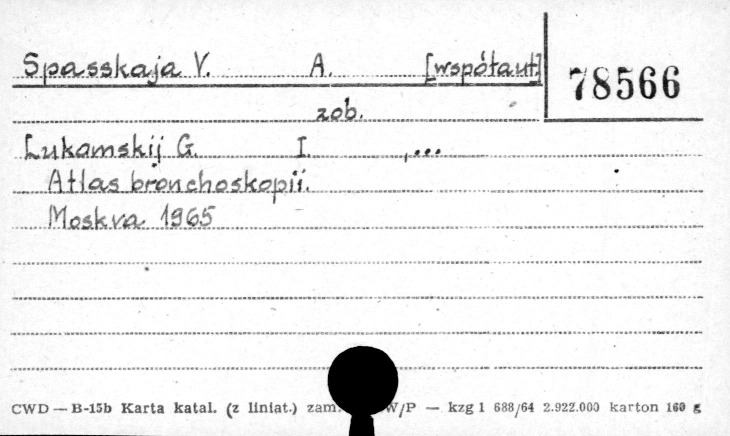 Spasskaja V. A. [współaut] 78566
zob.
Łukamskij G. I. ,...
Atlas bronchoskopii.
Moskva 1965
CWD — B-15b Karta katal. (z liniat.) zam. W/P — kzg 1 688/64 2.922.000 karton 160 g